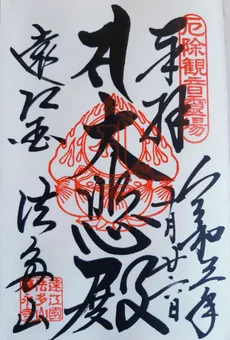 厄除観音霊場
奉拝
令和三年
月廿六日
大悲殿
遠江国 法多山
遠江國
法多山
尊永寺